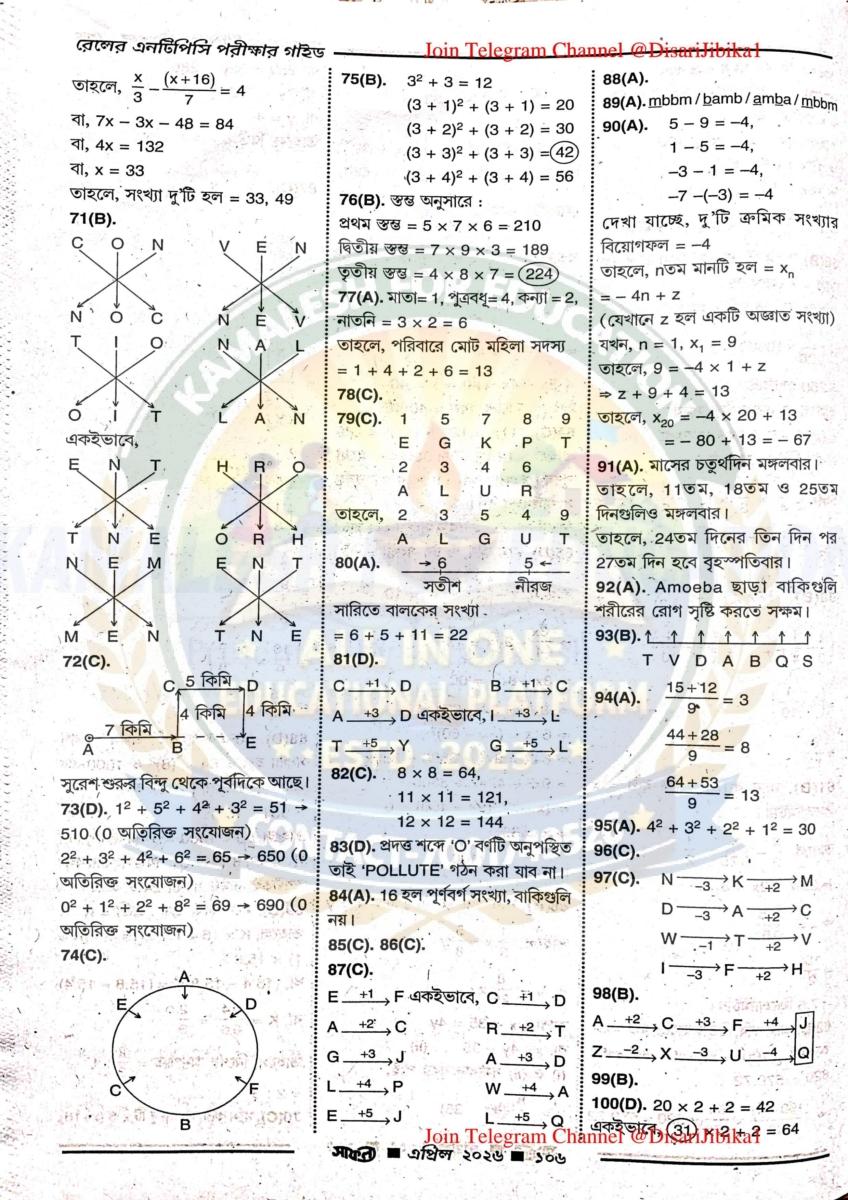 রেলের এনটিপিসি পরীক্ষার গাইড
Join Telegram Channel @DisariJibika1
তাহলে, x/3 - (x+16)/7 = 4
বা, 7x – 3x – 48 = 84
বা, 4x = 132
বা, x = 33
তাহলে, সংখ্যা দু'টি হল = 33, 49
71(B).
C O N V E N
N O C N E V
T I O N A L
O I T L A N
একইভাবে,
E N T H R O
T N E O R H
N E M E N T
M E N T N E
72(C).
C 5 কিমি D
4 কিমি 4 কিমি
7 কিমি
A B E
সুরেশ শুরুর বিন্দু থেকে পূর্বদিকে আছে।
73(D). 1² + 5² + 4² + 3² = 51 →
510 (0 অতিরিক্ত সংযোজন)
2² + 3² + 4² + 6² = 65 → 650 (0
অতিরিক্ত সংযোজন)
0² + 1² + 2² + 8² = 69 → 690 (0
অতিরিক্ত সংযোজন)
74(C).
A
E D
C F
B
75(B). 3² + 3 = 12
(3 + 1)² + (3 + 1) = 20
(3 + 2)² + (3 + 2) = 30
(3 + 3)² + (3 + 3) = 42
(3 + 4)² + (3 + 4) = 56
76(B). স্তম্ভ অনুসারে :
প্রথম স্তম্ভ = 5 × 7 × 6 = 210
দ্বিতীয় স্তম্ভ = 7 × 9 × 3 = 189
তৃতীয় স্তম্ভ = 4 × 8 × 7 = 224
77(A). মাতা= 1, পুত্রবধূ= 4, কন্যা = 2,
নাতনি = 3 × 2 = 6
তাহলে, পরিবারে মোট মহিলা সদস্য
= 1 + 4 + 2 + 6 = 13
78(C).
79(C). 1 5 7 8 9
E G K P T
2 3 4 6
A L U R
তাহলে, 2 3 5 4 9
A L G U T
80(A). → 6 5 ←
সতীশ নীরজ
সারিতে বালকের সংখ্যা
= 6 + 5 + 11 = 22
81(D).
C +1 D B +1 C
A +3 D একইভাবে, I +3 L
T +5 Y G +5 L
82(C). 8 × 8 = 64,
11 × 11 = 121,
12 × 12 = 144
83(D). প্রদত্ত শব্দে 'O' বর্ণটি অনুপস্থিত
তাই 'POLLUTE' গঠন করা যাব না।
84(A). 16 হল পূর্ণবর্গ সংখ্যা, বাকিগুলি
নয়।
85(C). 86(C).
87(C).
E +1 F একইভাবে, C +1 D
A +2 C R +2 T
G +3 J A +3 D
L +4 P W +4 A
E +5 J L +5 Q
88(A).
89(A). mbbm / bamb / amba / mbbm
90(A). 5 – 9 = –4,
1 – 5 = –4,
–3 – 1 = –4,
–7 –(–3) = –4
দেখা যাচ্ছে, দু'টি ক্রমিক সংখ্যার
বিয়োগফল = –4
তাহলে, nতম মানটি হল = xₙ
= – 4n + z
(যেখানে z হল একটি অজ্ঞাত সংখ্যা)
যখন, n = 1, x₁ = 9
তাহলে, 9 = –4 × 1 + z
⇒ z + 9 + 4 = 13
তাহলে, x₂₀ = –4 × 20 + 13
= – 80 + 13 = – 67
91(A). মাসের চতুর্থদিন মঙ্গলবার।
তাহলে, 11তম, 18তম ও 25তম
দিনগুলিও মঙ্গলবার।
তাহলে, 24তম দিনের তিন দিন পর
27তম দিন হবে বৃহস্পতিবার।
92(A). Amoeba ছাড়া বাকিগুলি
শরীরের রোগ সৃষ্টি করতে সক্ষম।
93(B). ↑ ↑ ↑ ↑ ↑ ↑ ↑
T V D A B Q S
94(A). (15+12)/9 = 3
(44+28)/9 = 8
(64+53)/9 = 13
95(A). 4² + 3² + 2² + 1² = 30
96(C).
97(C). N –3 K +2 M
D –3 A +2 C
W –1 T +2 V
I –3 F +2 H
98(B).
A +2 C +3 F +4 J
Z –2 X –3 U –4 Q
99(B).
100(D). 20 × 2 + 2 = 42
একইভাবে, 31 × 2 + 2 = 64
Join Telegram Channel @DisariJibika1
সাফল্য ■ এপ্রিল ২০২৬ ■ ১০৬
KAMALESH FOR EDUCATION
ALL IN ONE
EDUCATIONAL PLATFORM
ESTD - 2023